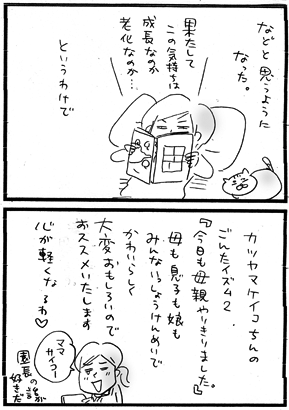 などと思うように
なった。
果たして
この気持ちは
成長なのか
老化なのか…
というわけで
カツヤマケイコちんの
ごんたイズム2
『今日も母親やりきりました。』
母も息子も娘も
みんないっしょうけんめいで
かわいらしく
大変おもしろいので
おススメいたします
心が軽くなるわ♡
ママ
サイコー!
園長の話が
好きだ